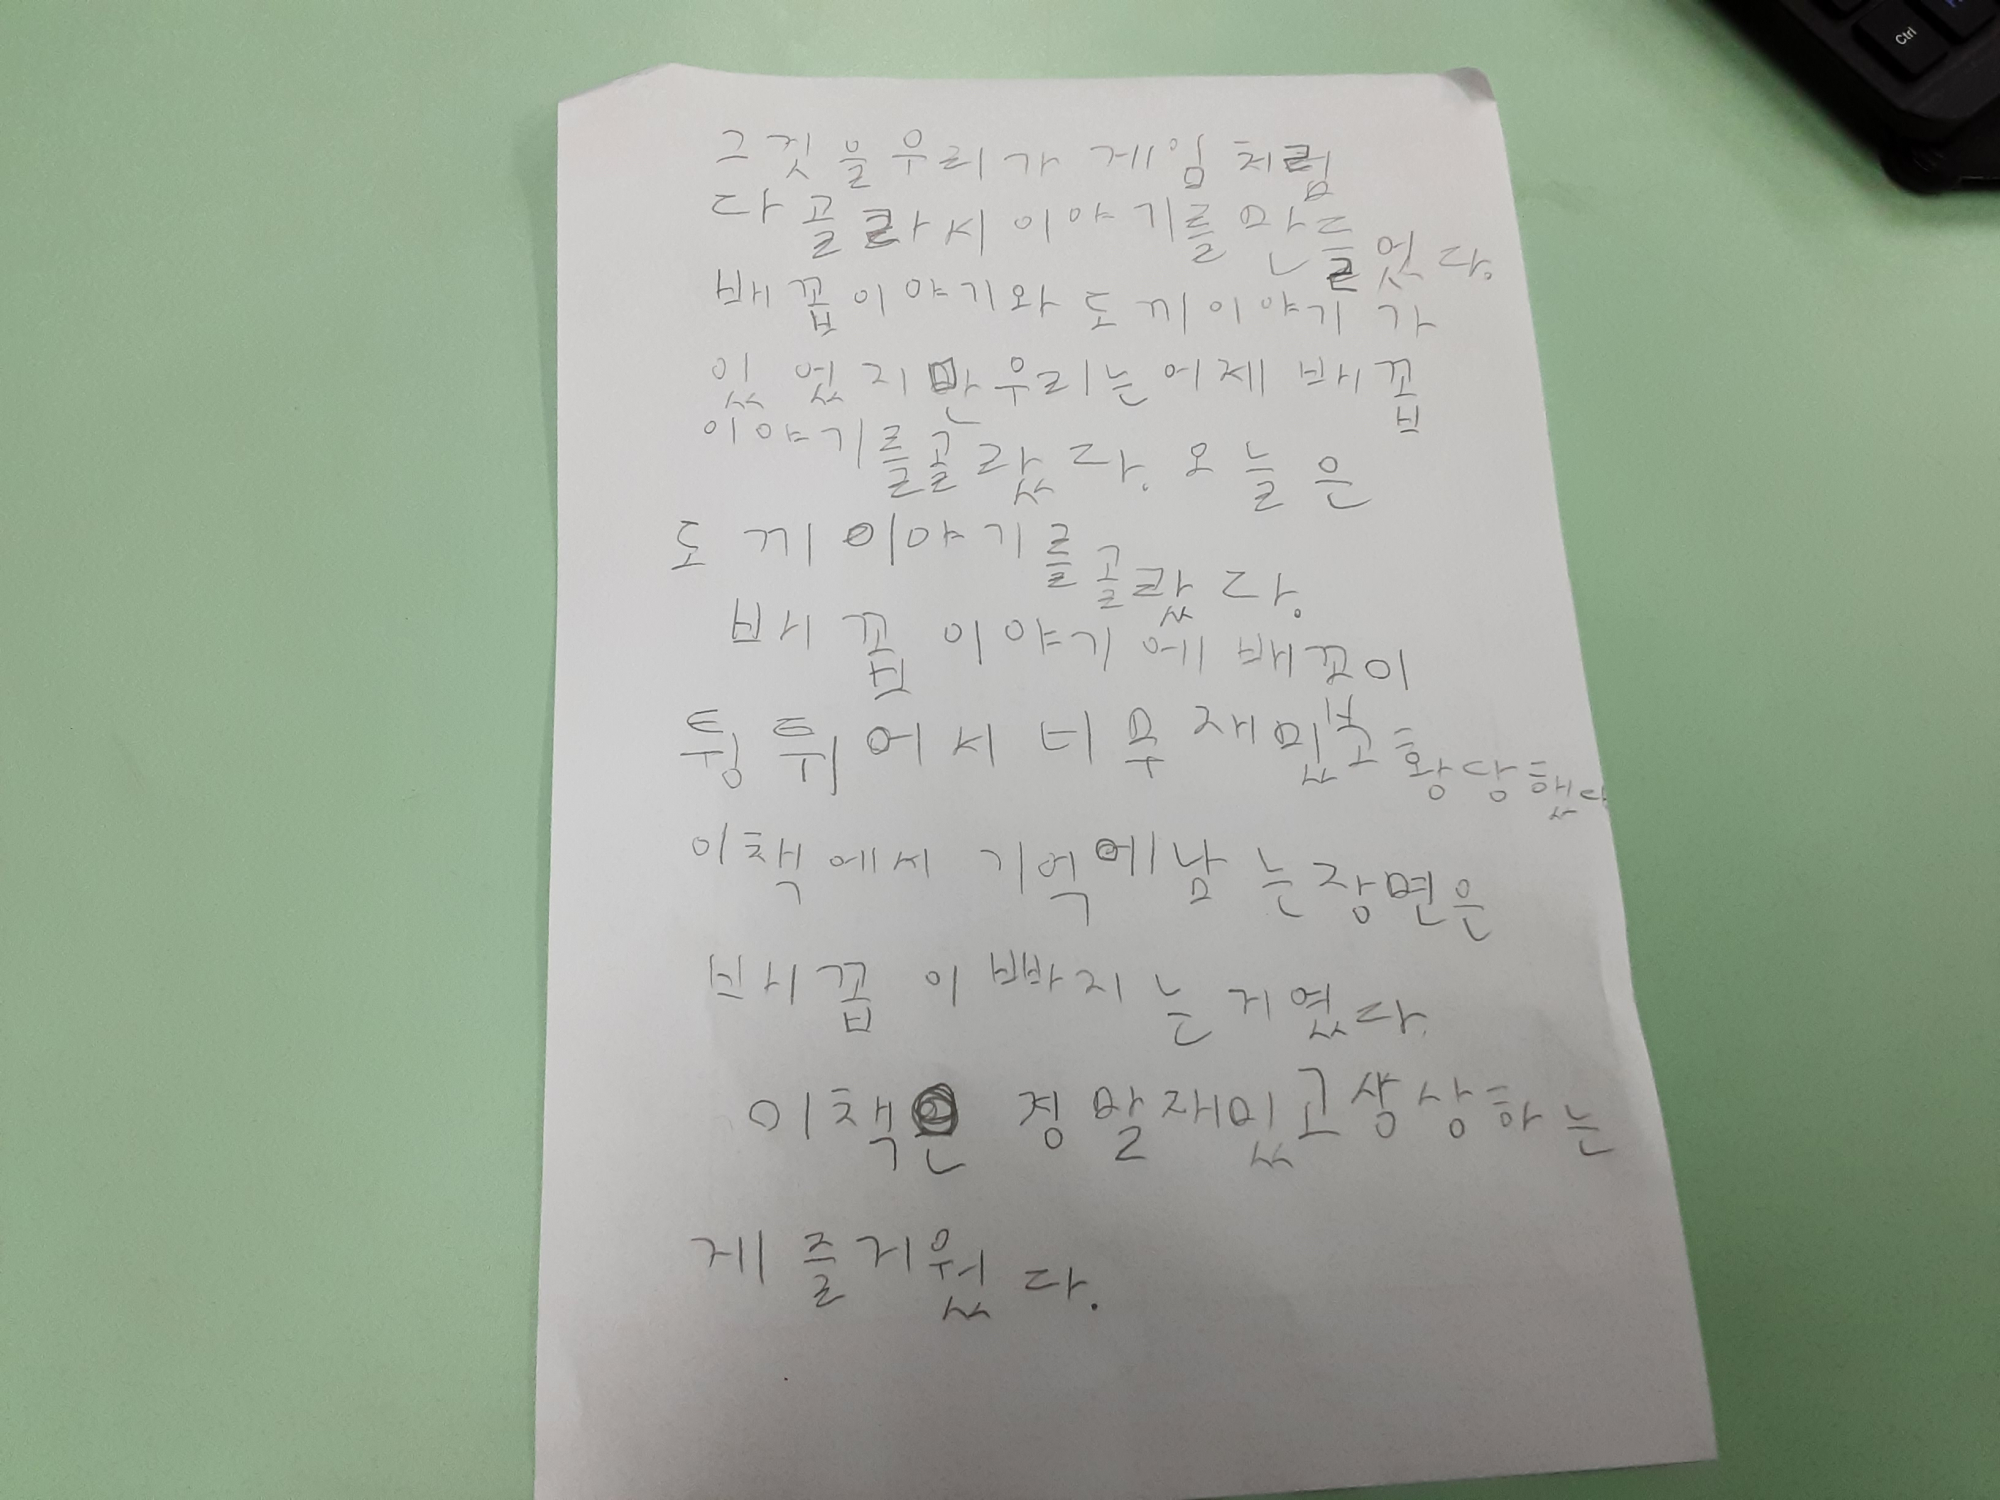 그것을우리가 게임처럼
다골라서이야기를만들었다.
배꼽이야기와 도끼이야기가
있었지만우리는어제배꼽
이야기를골랐다. 오늘은
도끼이야기를골랐다.
배꼽 이야기에 배꼬이
튕튀어서 너무 재밌고 황당했다
이책에서 기억에남는장면은
배꼽이 빠지는거였다.
이책은 정말재밌고생상하는
게 즐거웠다.
Ctrl